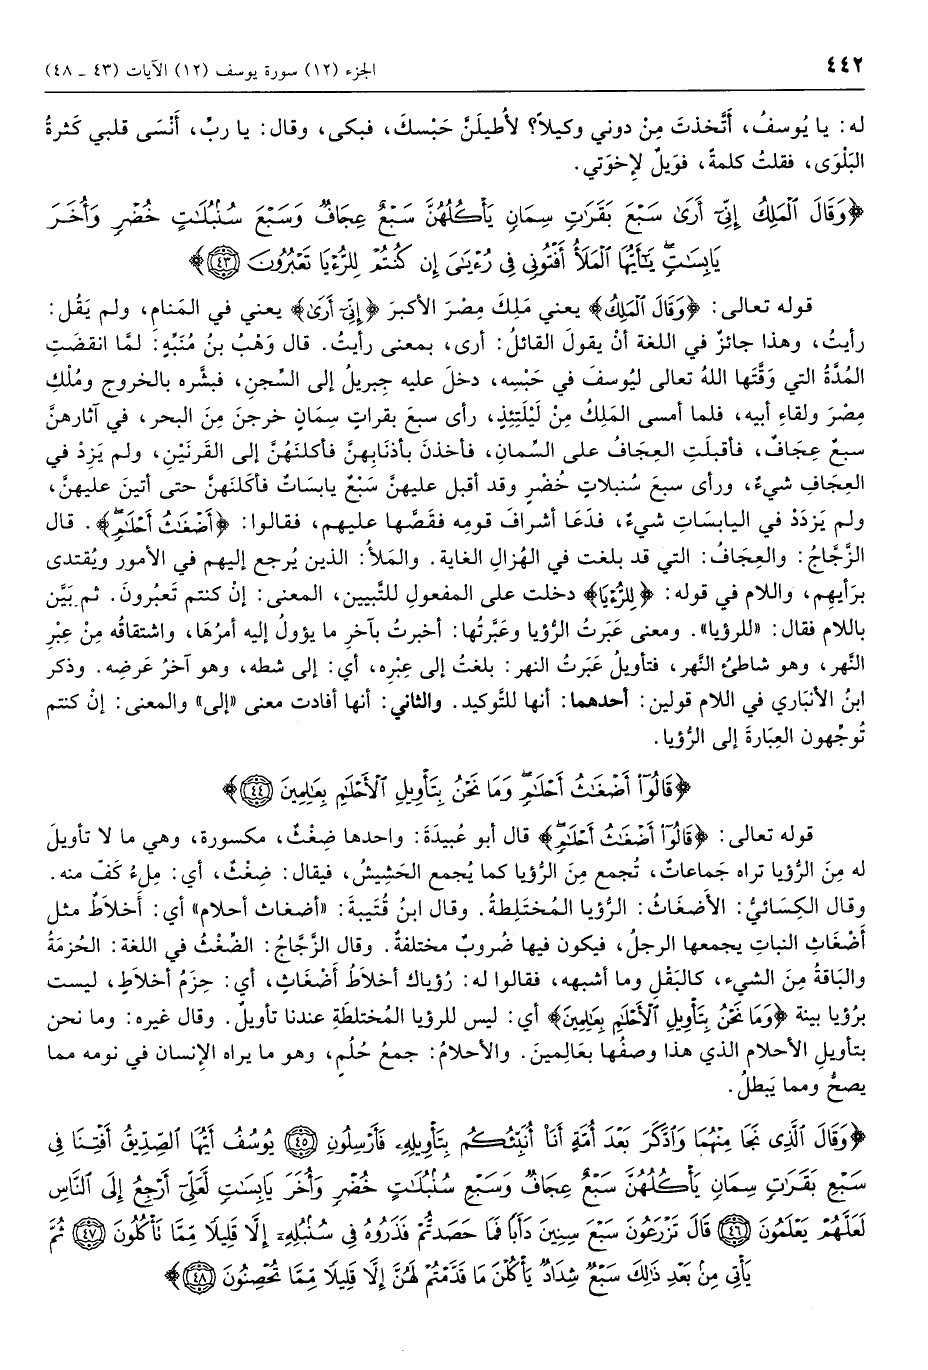 ٤٤٢
الجزء (١٢) سورة يوسف (١٢) الآيات (٤٣ ـ ٤٨)
له: يا يُوسفُ، أَتَّخذتَ مِنْ دوني وكيلاً؟ لأُطيلَنَّ حَبْسكَ، فبكى، وقال: يا ربِّ، أَنْسَى قلبي كَثرةُ
البَلْوَى، فقلتُ كلمةً، فوَيلٌ لإِخوَتي.
﴿وَقَالَ ٱلْمَلِكُ إِنِّىٓ أَرَىٰ سَبْعَ بَقَرَٰتٍ سِمَانٍ يَأْكُلُهُنَّ سَبْعٌ عِجَافٌ وَسَبْعَ سُنۢبُلَٰتٍ خُضْرٍ وَأُخَرَ
يَابِسَٰتٍۖ يَٰٓأَيُّهَا ٱلْمَلَأُ أَفْتُونِى فِى رُءْيَٰىَ إِن كُنتُمْ لِلرُّءْيَا تَعْبُرُونَ ﴿٤٣﴾﴾
قوله تعالى: ﴿وَقَالَ ٱلْمَلِكُ﴾ يعني مَلِكَ مِصْرَ الأكبرَ ﴿إِنِّىٓ أَرَىٰ﴾ يعني في المَنامِ، ولم يَقُل:
رأيتُ، وهذا جائزٌ في اللغة أنْ يقولَ القائلُ: أرى، بمعنى رأيتُ. قال وَهْبُ بنُ مُنَبِّهٍ: لمَّا انقضَتِ
المُدَّةُ التي وَقَّتَها اللهُ تعالى ليُوسفَ في حَبْسِه، دخلَ عليه جِبريلُ إلى السِّجنِ، فبشَّره بالخروج ومُلْكِ
مِصْرَ ولقاءِ أبيه، فلما أمسى المَلِكُ مِنْ لَيْلَتِئِذٍ، رأى سبعَ بقراتٍ سِمَانٍ خرجنَ مِنَ البحر، في آثارهنَّ
سبعٌ عِجَافٌ، فأقبلَتِ العِجَافُ على السِّمانِ، فأخذنَ بأذنَابِهنَّ فأكلنَهُنَّ إلى القَرنَيْنِ، ولم يَزِدْ في
العِجَافِ شيءٌ، ورأى سبعَ سُنبلاتٍ خُضْرٍ وقد أقبل عليهنَّ سَبْعٌ يابسَاتٌ فأكَلنَهنَّ حتى أتينَ عليهنَّ،
ولم يَزدَدْ في اليابسَاتِ شيءٌ، فدَعَا أشرافَ قومِه فقَصَّها عليهم، فقالوا: ﴿أَضْغَٰثُ أَحْلَٰمٍۖ﴾. قال
الزَّجَّاجُ: والعِجَافُ: التي قد بلغت في الهُزالِ الغاية. والمَلأُ: الذين يُرجع إليهم في الأمور ويُقتدى
برَأيِهم، واللام في قوله: ﴿لِلرُّءْيَا﴾ دخلت على المفعولِ للتَّبيين، المعنى: إنْ كنتم تَعبُرونَ. ثم بَيَّن
باللام فقال: «للرؤيا». ومعنى عَبَرتُ الرُّؤيا وعَبَّرتُها: أخبرتُ بآخرِ ما يؤولُ إليه أمرُهَا، واشتقاقُه مِنْ عِبْرِ
النَّهر، وهو شاطئُ النَّهر، فتأويلُ عَبَرتُ النهر: بلغتُ إلى عِبْرِه، أي: إلى شطه، وهو آخرُ عَرضِه. وذكر
ابنُ الأنبَاري في اللام قولين: أحدهما: أنها للتَّوكيد. والثاني: أنها أفادت معنى «إلى» والمعنى: إنْ كنتم
تُوجِّهون العِبَارةَ إلى الرُّؤيا.
﴿قَالُوٓا۟ أَضْغَٰثُ أَحْلَٰمٍۖ وَمَا نَحْنُ بِتَأْوِيلِ ٱلْأَحْلَٰمِ بِعَٰلِمِينَ ﴿٤٤﴾﴾
قوله تعالى: ﴿قَالُوٓا۟ أَضْغَٰثُ أَحْلَٰمٍۖ﴾ قال أبو عُبيدَةَ: واحدها ضِغْثٌ، مكسورة، وهي ما لا تأويلَ
له مِنَ الرُّؤيا تراه جَماعاتٌ، تُجمع مِنَ الرُّؤيا كما يُجمع الحَشِيشُ، فيقال: ضِغْثٌ، أي: مِلءُ كَفّ منه.
وقال الكِسَائيُّ: الأضغَاثُ: الرُّؤيا المُختَلِطةُ. وقال ابنُ قُتَيبةَ: «أضغاث أحلام» أي: أخلاَطٌ مثل
أَضْغَاثِ النباتِ يجمعها الرجلُ، فيكون فيها ضُروبٌ مختلفةٌ. وقال الزَّجَّاجُ: الضِّغْثُ في اللغة: الحُزمَةُ
والبَاقةُ مِنَ الشيء، كالبَقْلِ وما أشبهه، فقالوا له: رُؤياك أخلاَطُ أَضْغَاثٍ، أي: حِزَمُ أخلاَطٍ، ليست
برُؤيا بينة ﴿وَمَا نَحْنُ بِتَأْوِيلِ ٱلْأَحْلَٰمِ بِعَٰلِمِينَ﴾ أي: ليس للرؤيا المُختلطَةِ عندنا تأويلٌ. وقال غيره: وما نحن
بتأويلِ الأحلام الذي هذا وصفُها بعَالِمينَ. والأحلامُ: جمعُ حُلْمٍ، وهو ما يراه الإِنسان في نومه مما
يصحُّ ومما يَبطلُ.
﴿وَقَالَ ٱلَّذِى نَجَا مِنْهُمَا وَٱدَّكَرَ بَعْدَ أُمَّةٍ أَنَا۠ أُنَبِّئُكُم بِتَأْوِيلِهِۦ فَأَرْسِلُونِ ﴿٤٥﴾ يُوسُفُ أَيُّهَا ٱلصِّدِّيقُ أَفْتِنَا فِى
سَبْعِ بَقَرَٰتٍ سِمَانٍ يَأْكُلُهُنَّ سَبْعٌ عِجَافٌ وَسَبْعِ سُنۢبُلَٰتٍ خُضْرٍ وَأُخَرَ يَابِسَٰتٍ لَّعَلِّىٓ أَرْجِعُ إِلَى ٱلنَّاسِ
لَعَلَّهُمْ يَعْلَمُونَ ﴿٤٦﴾ قَالَ تَزْرَعُونَ سَبْعَ سِنِينَ دَأَبًا فَمَا حَصَدتُّمْ فَذَرُوهُ فِى سُنۢبُلِهِۦٓ إِلَّا قَلِيلًا مِّمَّا تَأْكُلُونَ ﴿٤٧﴾ ثُمَّ
يَأْتِى مِنۢ بَعْدِ ذَٰلِكَ سَبْعٌ شِدَادٌ يَأْكُلْنَ مَا قَدَّمْتُمْ لَهُنَّ إِلَّا قَلِيلًا مِّمَّا تُحْصِنُونَ ﴿٤٨﴾﴾